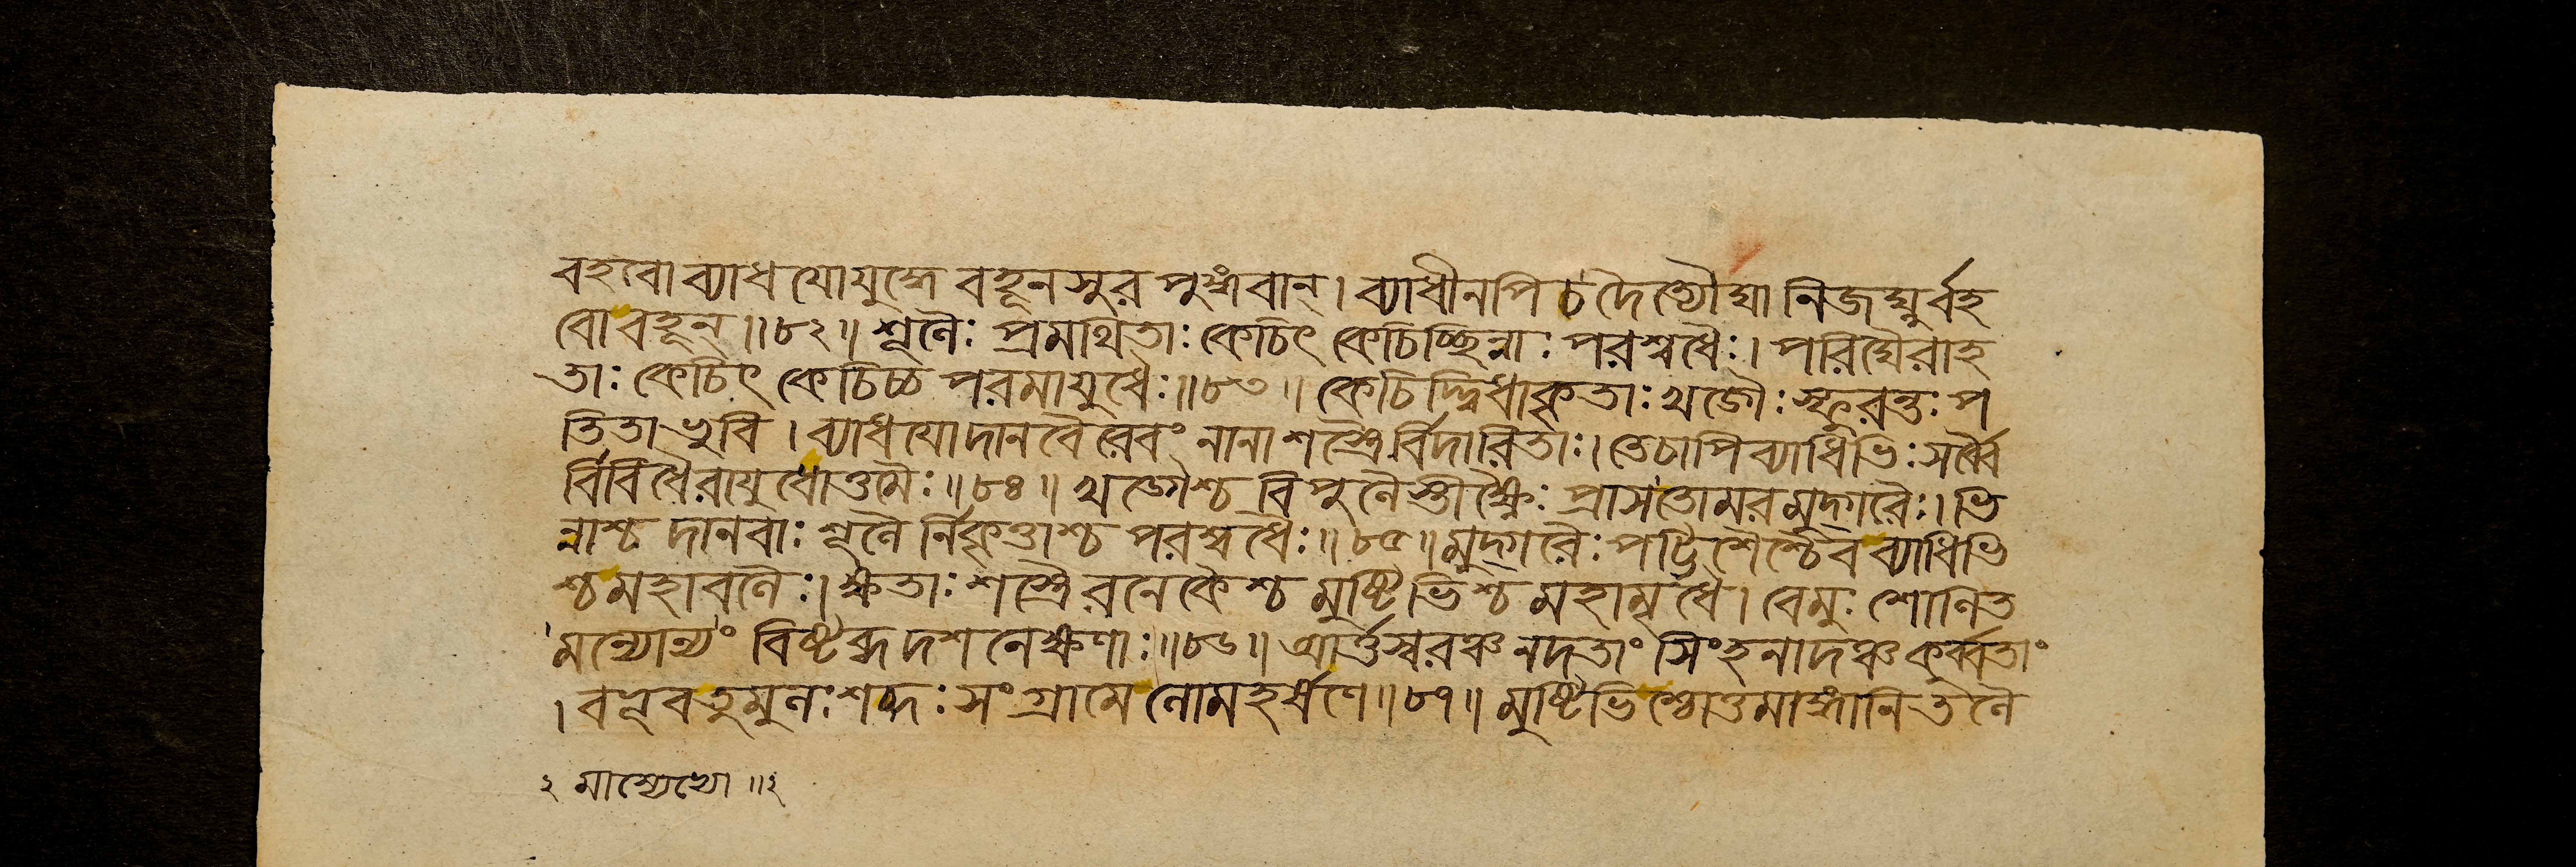 বহবো ব্যাধযো যুদ্ধে বহূনসুরপুঙ্গবান্। ব্যাধীনপি চ দৈত্যৌঘা নিজঘ্নুর্বহ
বো বহূন্॥৮২॥ শূলৈঃ প্রমাথিতাঃ কেচিৎ কেচিচ্ছিন্নাঃ পরশ্বধৈঃ। পরিঘৈরাহ
তাঃ কেচিৎ কেচিচ্চ পরমাযুধৈঃ॥৮৩॥ কেচিদ্দ্বিধাকৃতাঃ খড্গৈঃ স্ফুরন্তঃ প
তিতা ভুবি। ব্যাধযো দানবৈরেবং নানাশস্ত্রৈর্বিদারিতাঃ। তে চাপি ব্যাধিভিঃ সর্ব্বৈ
র্বিবিধৈরাযুধোত্তমৈঃ॥৮৪॥ খড্গৈশ্চ বিপুলৈস্তীক্ষ্ণৈঃ প্রাসতোমরমুদ্গরৈঃ। ভি
ন্নাশ্চ দানবাঃ শূলৈর্নিকৃত্তাশ্চ পরস্বধৈঃ॥৮৫॥ মুদ্গরৈঃ পট্টিশৈশ্চৈব ব্যাধিভি
শ্চ মহাবলৈঃ। ক্ষতাঃ শস্ত্রৈরনেকৈশ্চ মুষ্টিভিশ্চ মহামৃধে। বেমুঃ শোনিত
মন্যোন্যং বিষ্টব্ধদশনেক্ষণাঃ॥৮৬॥ আর্ত্তস্বরঞ্চ নদতাং সিংহনাদঞ্চ কুর্ব্বতাং
। বভূব তুমুলঃ শব্দঃ সংগ্রামে লোমহর্ষণে॥৮৭॥ মুষ্টিভিশ্চোত্তমাঙ্গানি তলৈ